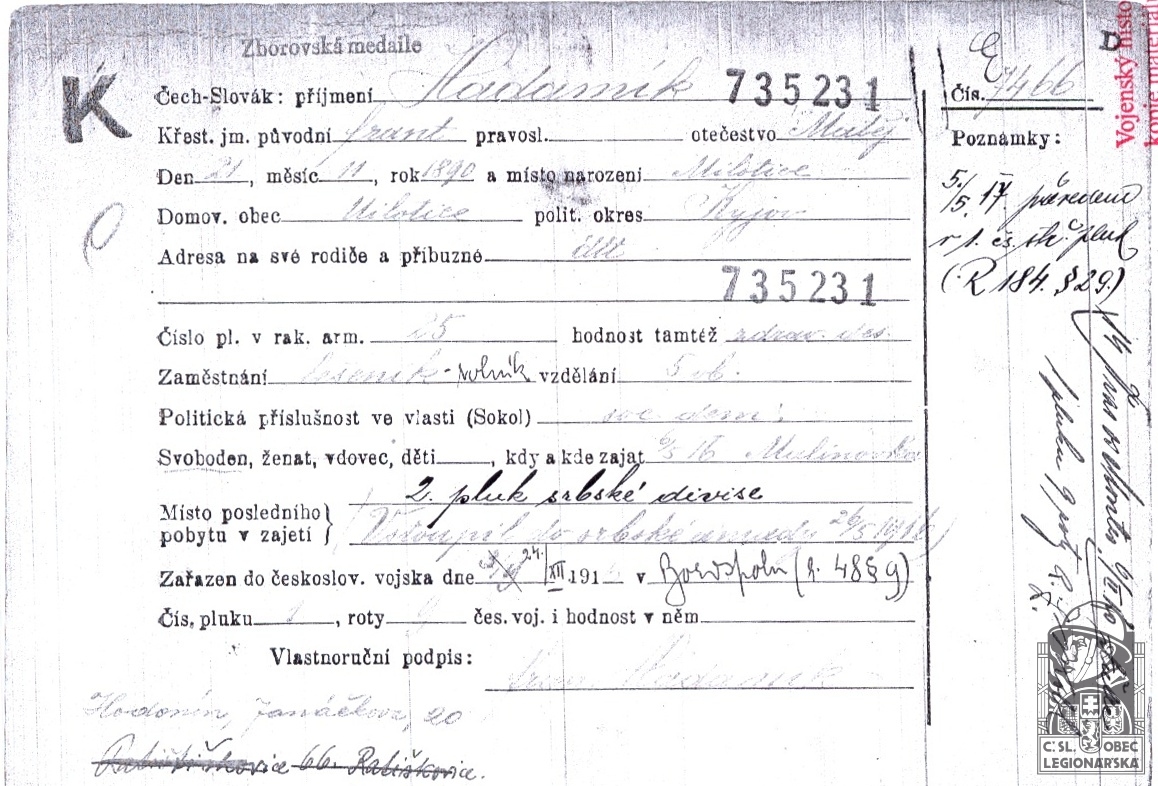 Zborovská medaile
K
Čech-Slovák: příjmení Hadamík 735231
Křest. jm. původní Frant pravosl. otečestvo Matěj
Den 21, měsíc 11, rok 1890 a místo narození Milotice
Domov. obec Milotice polit. okres Kyjov
Adresa na své rodiče a příbuzné
735231
Číslo pl. v rak. arm. 25 hodnost tamtéž zdrav. des.
Zaměstnání - rolník vzdělání 5 ob.
Politická příslušnost ve vlasti (Sokol) soc dem.
Svoboden, ženat, vdovec, děti , kdy a kde zajat 16 Mulinovka
2. pluk srbské divise
Místo posledního pobytu v zajetí } Vstoupil do srbské armády 26/5 1916
Zařazen do českoslov. vojska dne 24. XII 1916 v Borispolu (R. 48 § 9)
Čís. pluku 1, roty 9 čes. voj. i hodnost v něm
Vlastnoruční podpis: Hadamík
Hodonín, Janáčkova, 20
Ratiškovice 66. Ratiškovice.
D
Čís. 7466
Poznámky:
5./5. 17. převeden
v 1. čs. stř. pluk
(R 184. § 29.)
Vojenský histo
kopie materiálu
Č.SL. OBEC
LEGIONÁŘSKÁ